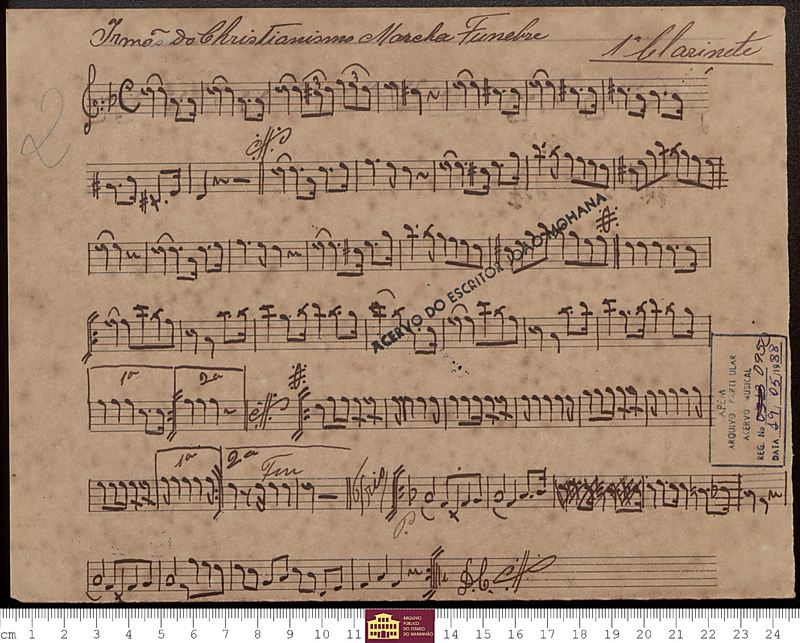 Irmão do Christianismo Marcha Funebre
1º Clarinete
2
3 3
ACERVO DO ESCRITOR JOÃO MOHANA
1ª 2ª
APEM
ARQUIVO PARTICULAR
ACERVO MUSICAL
REG. No 095
DATA 19/05/1988
1ª 2ª Fim
Trio
P.
D.C.
cm 1 2 3 4 5 6 7 8 9 10 11 14 15 16 17 18 19 20 21 22 23 24
ARQUIVO
PÚBLICO
DO ESTADO
DO MARANHÃO